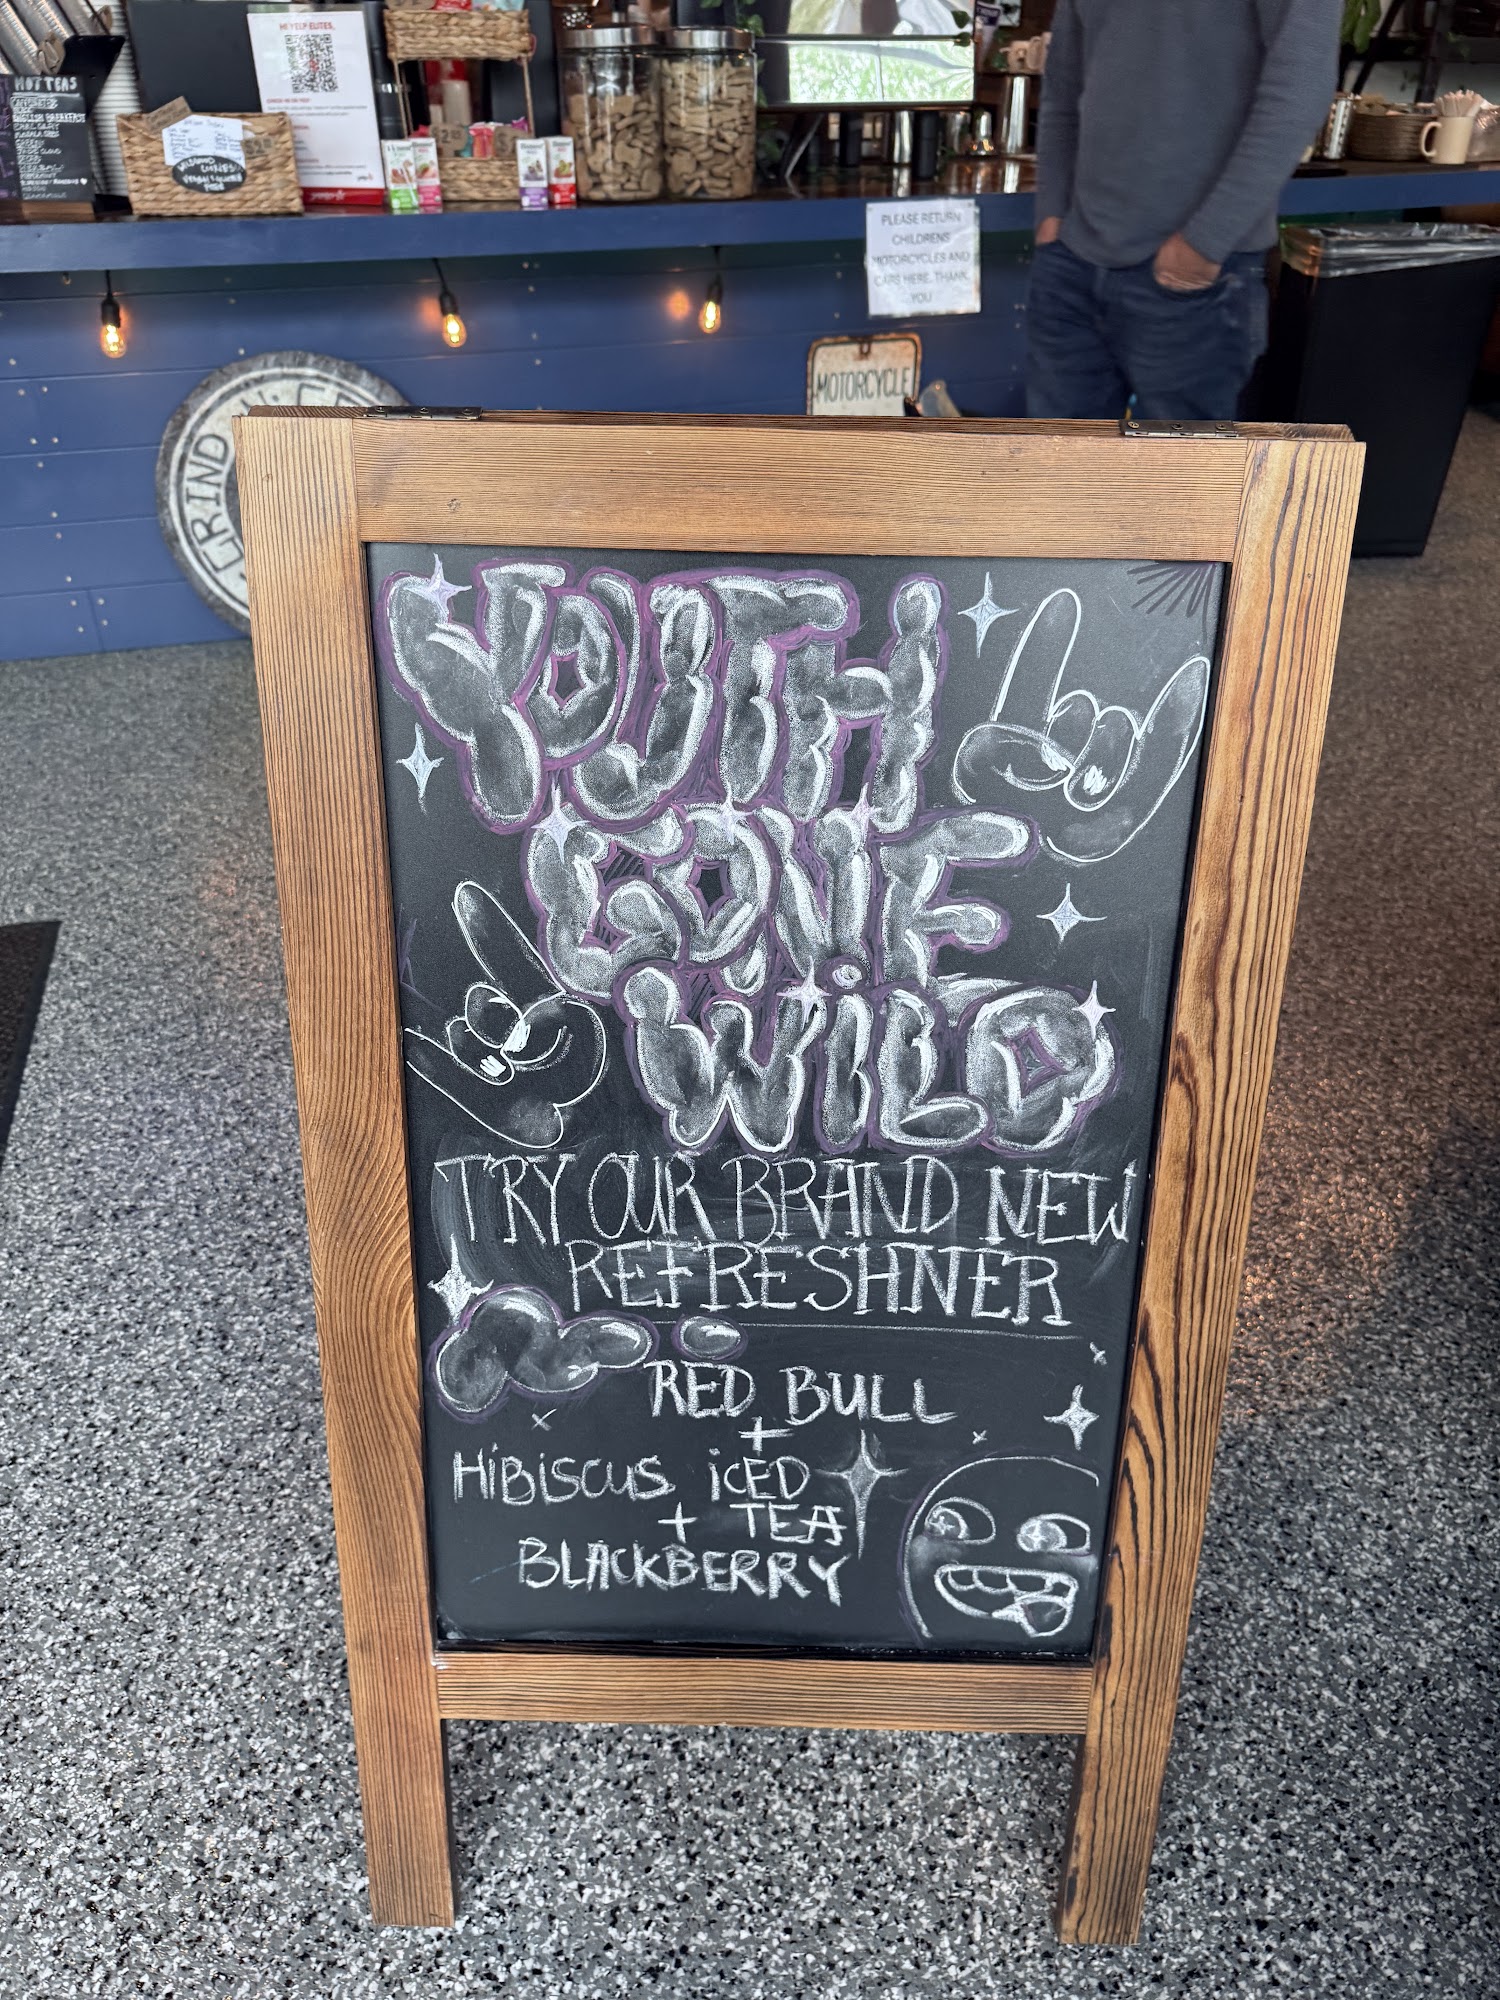 HI YELP ELITES,
HOT TEAS
ENGLISH BREAKFAST
EARL GREY
GREEN
PLEASE RETURN
CHILDRENS
MOTORCYCLES AND
CARS HERE. THANK
YOU
MOTORCYCLE
GRIND
YOUTH
GONE
WiLD
TRY OUR BRAND NEW
REFRESHNER
RED BULL
+
HiBiSCUS iCED
+ TEA
BLACKBERRY